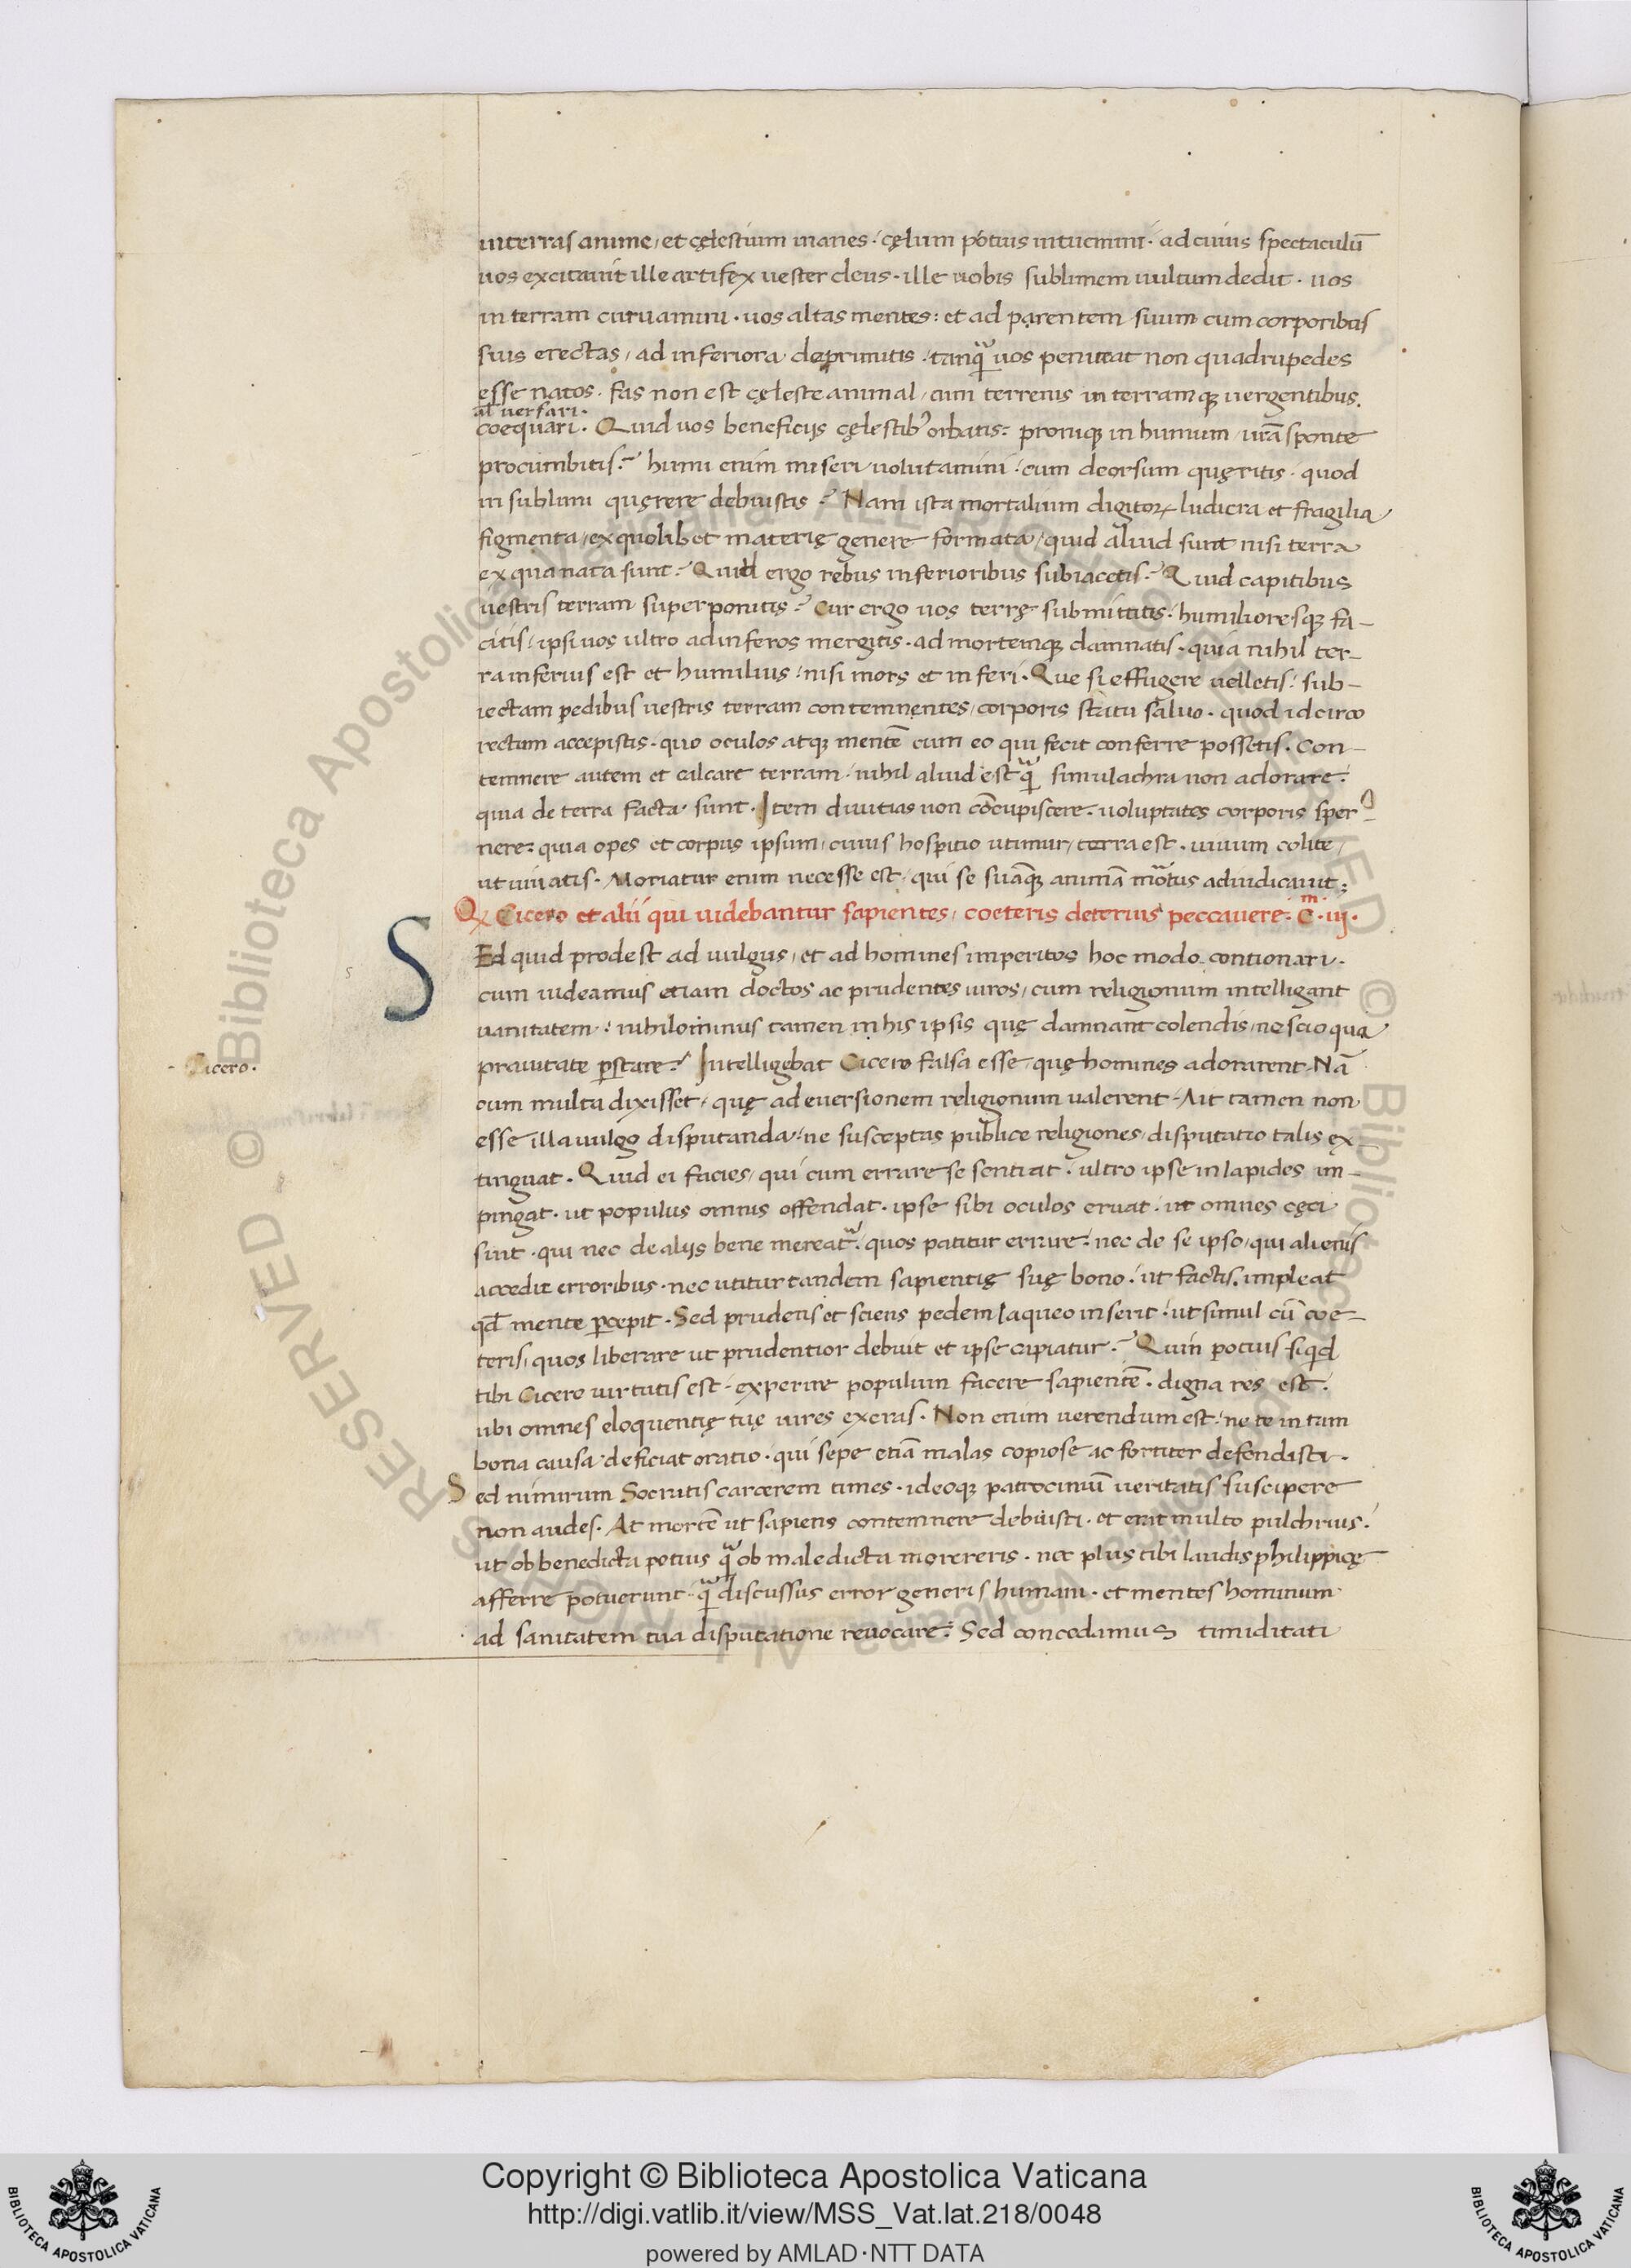 in terras anime, et cęlestium inanes. cęlum potius intuemini. ad cuius spectaculū
uos excitauit ille artifex uester deus. ille uobis sublimem uultum dedit. uos
in terram curuamini. uos altas mentes: et ad parentem suum cum corporibus
suis erectas, ad inferiora deprimitis. tanq̃ uos peniteat non quadrupedes
esse natos. fas non est cęleste animal, cum terrenis in terramq; uergentibus.
al uersari.
coequari. Quid uos beneficijs cęlestib' orbatis: proniq; in humum urā sponte
procumbitis? humi enim miseri uolutamini: cum deorsum quęritis. quod
in sublimi quęrere debuistis? Nam ista mortalium digitoꝝ ludicra et fragilia
figmenta, ex quolibet materię genere formata, quid aliud sunt nisi terra
ex qua nata sunt? Quid ergo rebus inferioribus subiacetis? Quid capitibus
uestris terram superponitis? Cur ergo uos terrę submittitis. humilioresq; fa-
citis, ipsi uos ultro ad inferos mergitis. ad mortemq; damnatis. quia nihil ter-
ra inferius est et humilius, nisi mors et inferi. Que si effugere uelletis: sub-
iectam pedibus uestris terram contemnentes, corporis statu saluo. quod idcirco
rectum accepistis. quo oculos atq; mentē cum eo qui fecit conferre possetis. Con-
temnere autem et calcare terram, nihil aliud est q̃ simulachra non adorare:
quia de terra facta sunt. Item diuitias non cōcupiscere. uoluptates corporis sper-
nere: quia opes et corpus ipsum, cuius hospitio utimur, terra est. uiuum colite,
ut uiuatis. Moriatur enim necesse est, qui se suāq; animā mortuis adiudicauit;
Q Cicero et alii qui uidebantur sapientes, coeteris deterius peccauere: C.m iij.
SEd quid prodest ad uulgus, et ad homines imperitos hoc modo contionari.
cum uideamus etiam doctos ac prudentes uiros, cum religionum intelligant
uanitatem: nihilominus tamen in his ipsis quę damnant colendis, nescio qua
Cicero.
prauitate perstare? Intelligebat Cicero falsa esse, quę homines adorarent. Nā
cum multa dixisset, quę ad euersionem religionum ualerent. Ait tamen non
esse illa uulgo disputanda, ne susceptas publice religiones, disputatio talis ex-
tinguat. Quid ei facies, qui cum errare se sentiat: ultro ipse in lapides im-
pingat. ut populus omnis offendat. ipse sibi oculos eruat. ut omnes cęci
sint. qui nec de alijs bene mereatr: quos patitur errare: nec de se ipso, qui alienis
accedit erroribus. nec utitur tandem sapientię suę bono: ut factis impleat
qd mente percepit. Sed prudens et sciens pedem laqueo inserit: ut simul cū coe-
teris, quos liberare ut prudentior debuit et ipse capiatur? Quin potius siqd
tibi Cicero uirtutis est, experire populum facere sapientē. digna res est:
ubi omnes eloquentię tuę uires exeras. Non enim uerendum est, ne te in tam
bona causa deficiat oratio. qui sepe etiā malas copiose ac fortiter defendisti.
Sed nimirum Socratis carcerem times. ideoq; patrocinium ueritatis suscipere
non audes. At mortē ut sapiens contemnere debuisti. et erat multo pulchrius:
ut ob benedicta potius q̃ ob maledicta morereris. nec plus tibi laudis philippicę
afferre potuerunt q̃ discussus error generis humani. et mentes hominum
ad sanitatem tua disputatione reuocare: Sed concedamus timiditati
© Biblioteca Apostolica Vaticana ALL RIGHTS RESERVED
Copyright © Biblioteca Apostolica Vaticana
http://digi.vatlib.it/view/MSS_Vat.lat.218/0048
powered by AMLAD·NTT DATA
BIBLIOTECA APOSTOLICA VATICANA
BIBLIOTECA APOSTOLICA VATICANA